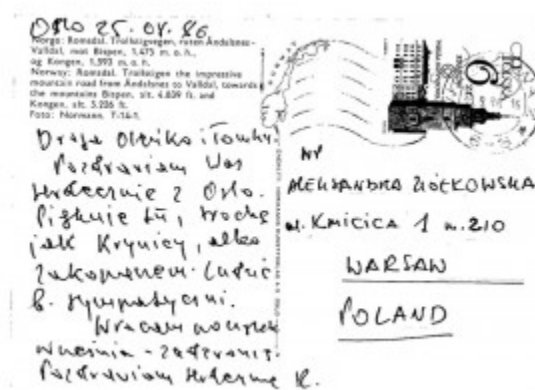 Oslo 25.08.86
Norge: Romsdal. Trollstigvegen, ruten Åndalsnes-
Valldal, mot Bispen, 1,475 m.o.h.,
og Kongen, 1,593 m.o.h.
Norway: Romsdal. Trollstigen the impressive
mountain road from Åndalsnes to Valldal, towards
the mountains Bispen, alt. 4.839 ft. and
Kongen, alt. 5.226 ft.
Foto: Normann. 7-14-1
Droga Oleńko i Tomku
Pozdrawiam Was
serdecznie z Oslo.
Pięknie tu, trochę
jak Krynicy, albo
Zakopanem. Ludzie
b. sympatyczni.
Wracam
września - zadzwonię.
Pozdrawiam serdecznie R.
ALEKSANDRA ZIÓŁKOWSKA
ul. KMICICA 1 m. 210
WARSAW
POLAND